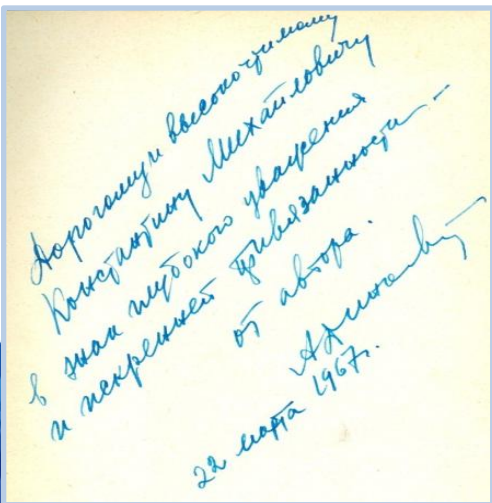 Дорогому и высокочтимому
Константину Михайловичу
в знак глубокого уважения
и искренней привязанности –
от автора.
22 марта 1967 г.